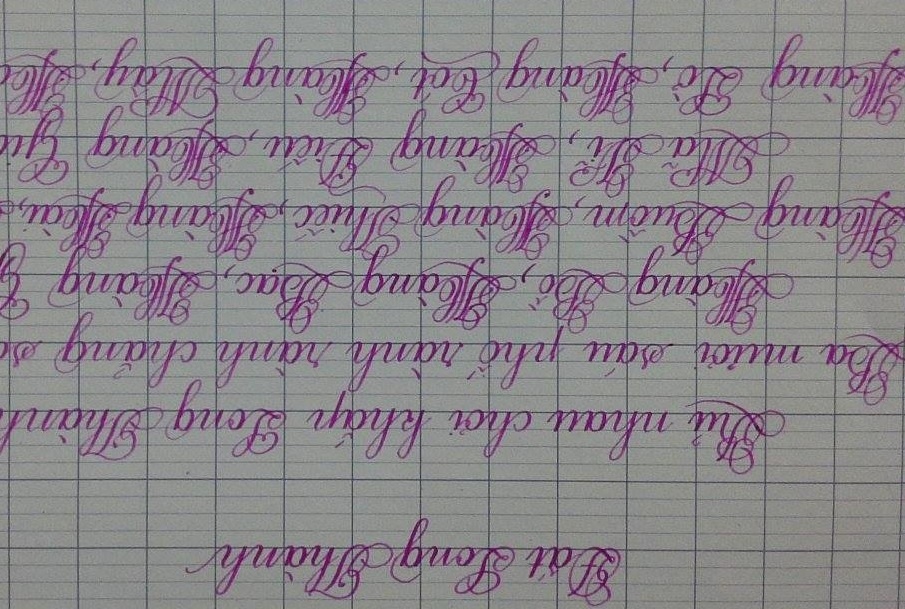 Đất Long Thành
Rủ nhau chơi khắp Long Thành
Ba mươi sáu phố rành rành chẳng
Hàng Bồ, Hàng Bạc, Hàng
Hàng Buồm, Hàng Thiếc, Hàng Hài,
Mã Vĩ, Hàng Điếu, Hàng
Hàng Lờ, Hàng Cót, Hàng Mây,